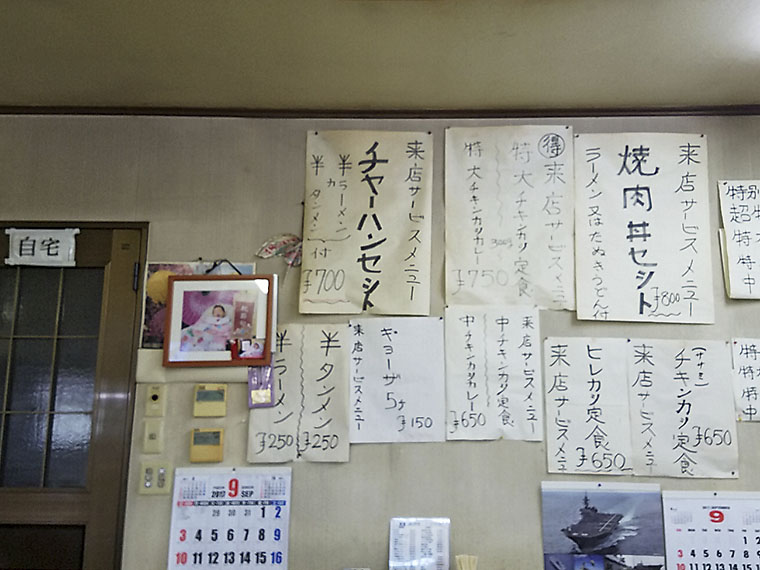 自宅
来店サービスメニュー
チャーハンセット
半ラーメン
カ
半タンメン
付
¥700
得
来店サービスメニュー
特大チキンカツ定食
特大チキンカツカレー
¥750
来店サービスメニュー
焼肉丼セット
¥800
ラーメン又はたぬきうどん付
特別
特
特
中
半タンメン
¥250
半ラーメン
¥250
ギョーザ5ケ
¥150
来店サービスメニュー
来店サービスメニュー
中チキンカツ定食
中チキンカツカレー
¥650
(ササミ)
チキンカツ定食
¥650
来店サービスメニュー
ヒレカツ定食
¥650
来店サービスメニュー
特
特
中
2017 9 SEP
28 29 30 31 1 2
3 4 5 6 7 8 9
10 11 12 13 14 15 16
9
1 2
3 4 5 6 7 8 9
10